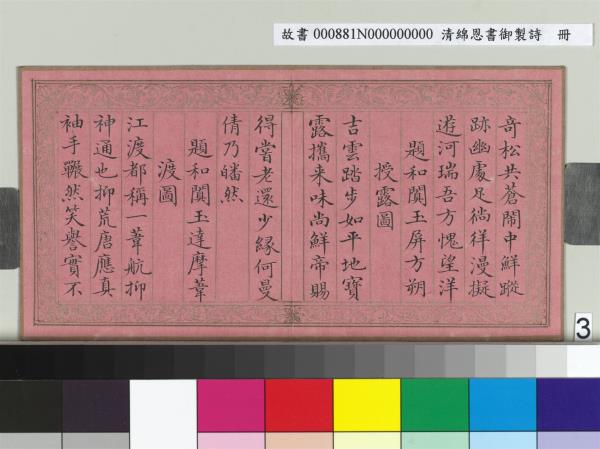 故書 000881N000000000 清綿恩書御製詩 冊
奇松共蒼閙中鮮蹤
跡幽處足徜徉漫擬
逰河瑞吾方愧望洋
題和闐玉屏方朔
授露圖
吉雲踏步如平地寶
露攜来味尚鮮帝賜
得嘗老還少緣何曼
倩乃皤然
題和闐玉達摩葦
渡圖
江渡都稱一葦航抑
神通也抑荒唐應真
袖手囅然笑譽實不
3